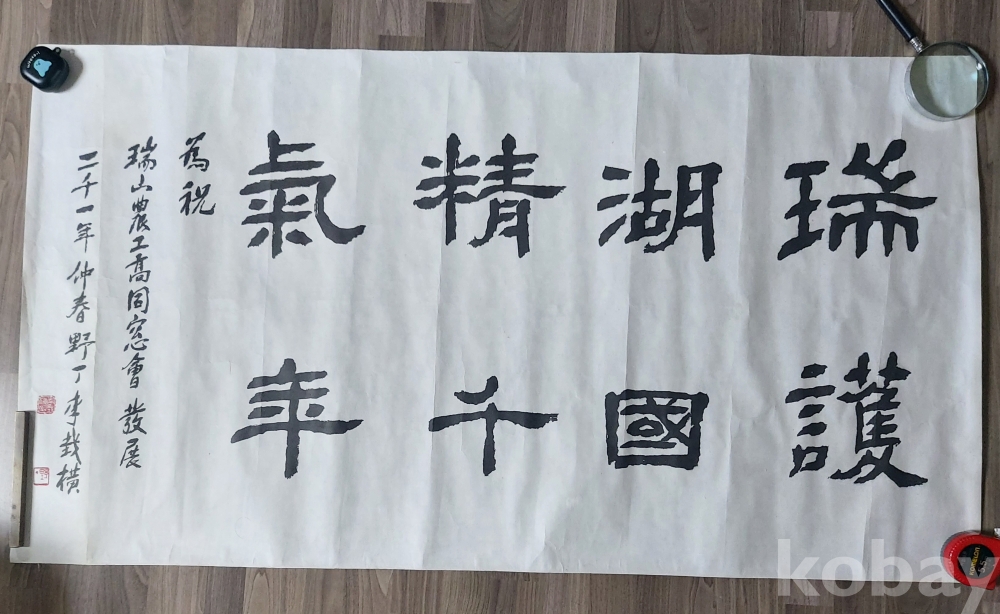 瑞湖精氣
護國千年
為祝
瑞山農工高同窓會 發展
二千一年 仲春 野丁 李
kobay